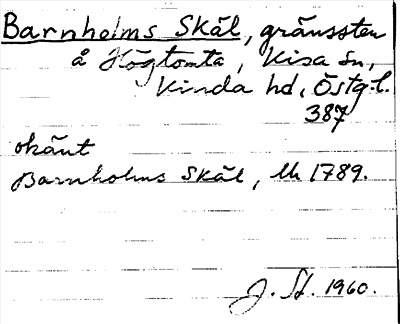 Barnholms Skäl, gränssten
å Högtomta, Kisa sn,
Kinda hd, Östg.l.
387
okänt
Barnholms Skäl, Lk 1789.
J. St. 1960.